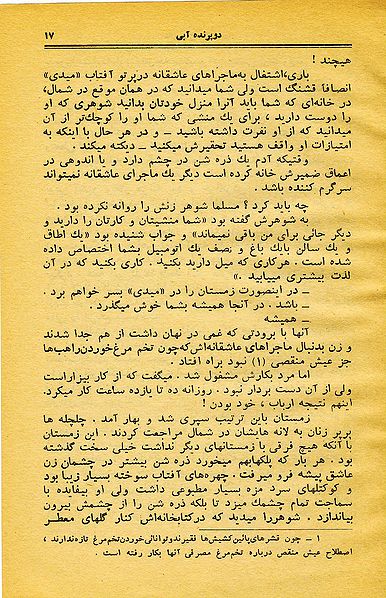 دوپرنده آبی ۱۷
هیچند !
باری، اشتغال به‌ماجراهای عاشقانه در پرتو آفتاب «میدی»
انصافا قشنگ است ولی شما میدانید که در همان موقع در شمال،
در خانه‌ای که شما باید آنرا منزل خودتان بدانید شوهری که او
را دوست دارید ، برای یك منشی که شما او را کوچك‌تر از آن
میدانید که از او نفرت داشته باشید ـ و در هر حال با اینکه به
امتیازات او واقف هستید تحقیرش میکنید ـ دیکته میکند .
وقتیکه آدم یك ذره شن در چشم دارد و یا اندوهی در
اعماق ضمیرش خانه کرده است دیگر یك ماجرای عاشقانه نمیتواند
سرگرم کننده باشد .
چه باید کرد ؟ مسلما شوهر زنش را روانه نکرده بود .
به شوهرش گفته بود «شما منشیتان و کارتان را دارید و
دیگر جائی برای من باقی نمیماند» و جواب شنیده بود «یك اطاق
و یك سالن بایك باغ و نصف یك اتومبیل بشما اختصاص داده
شده است . هرکاری که میل دارید بکنید . کاری بکنید که در آن
لذت بیشتری مییابید .»
ـ در اینصورت زمستان را در «میدی» بسر خواهم برد .
ـ باشد . در آنجا همیشه بشما خوش میگذرد .
ـ همیشه
آنها با برودتی که غمی در نهان داشت از هم جدا شدند
و زن بدنبال ماجراهای عاشقانه‌اش‌که‌چون تخم مرغ‌خوردن‌راهب‌ها
جز عیش منقصی (۱) نبود براه افتاد .
اما مرد بکارش مشغول شد . میگفت که از کار بیزاراست
ولی از آن دست بردار نبود . روزانه ده تا یازده ساعت کار میکرد.
اینهم نتیجه ارباب ، خود بودن !
زمستان باین ترتیب سپری شد و بهار آمد . چلچله ها
پرپر زنان به لانه هایشان در شمال مراجعت کردند . این زمستان
با آنکه هیچ فرقی با زمستانهای دیگر نداشت خیلی سخت گذشته
بود . هر بار که پلکهابهم میخورد ذره شن بیشتر در چشمان زن
عاشق پیشه فرو میرفت . چهره‌های آفتاب سوخته بسیار زیبا بود
و کوکتلهای سرد مزه بسیار مطبوعی داشت ولی او بیفایده با
سماجت تمام چشمك میزد تا بلکه ذره شن را از چشمش بیرون
بیاندازد . شوهررا میدید که درکتابخانه‌اش کنار گلهای معطر
۱ ـ چون قشرهای پائین‌کشیش‌ها فقیرندوتوانائی‌خوردن‌تخم‌مرغ تازه‌ندارند ،
اصطلاح عیش منقص درباره تخم‌مرغ مصرفی آنها بکار رفته است .